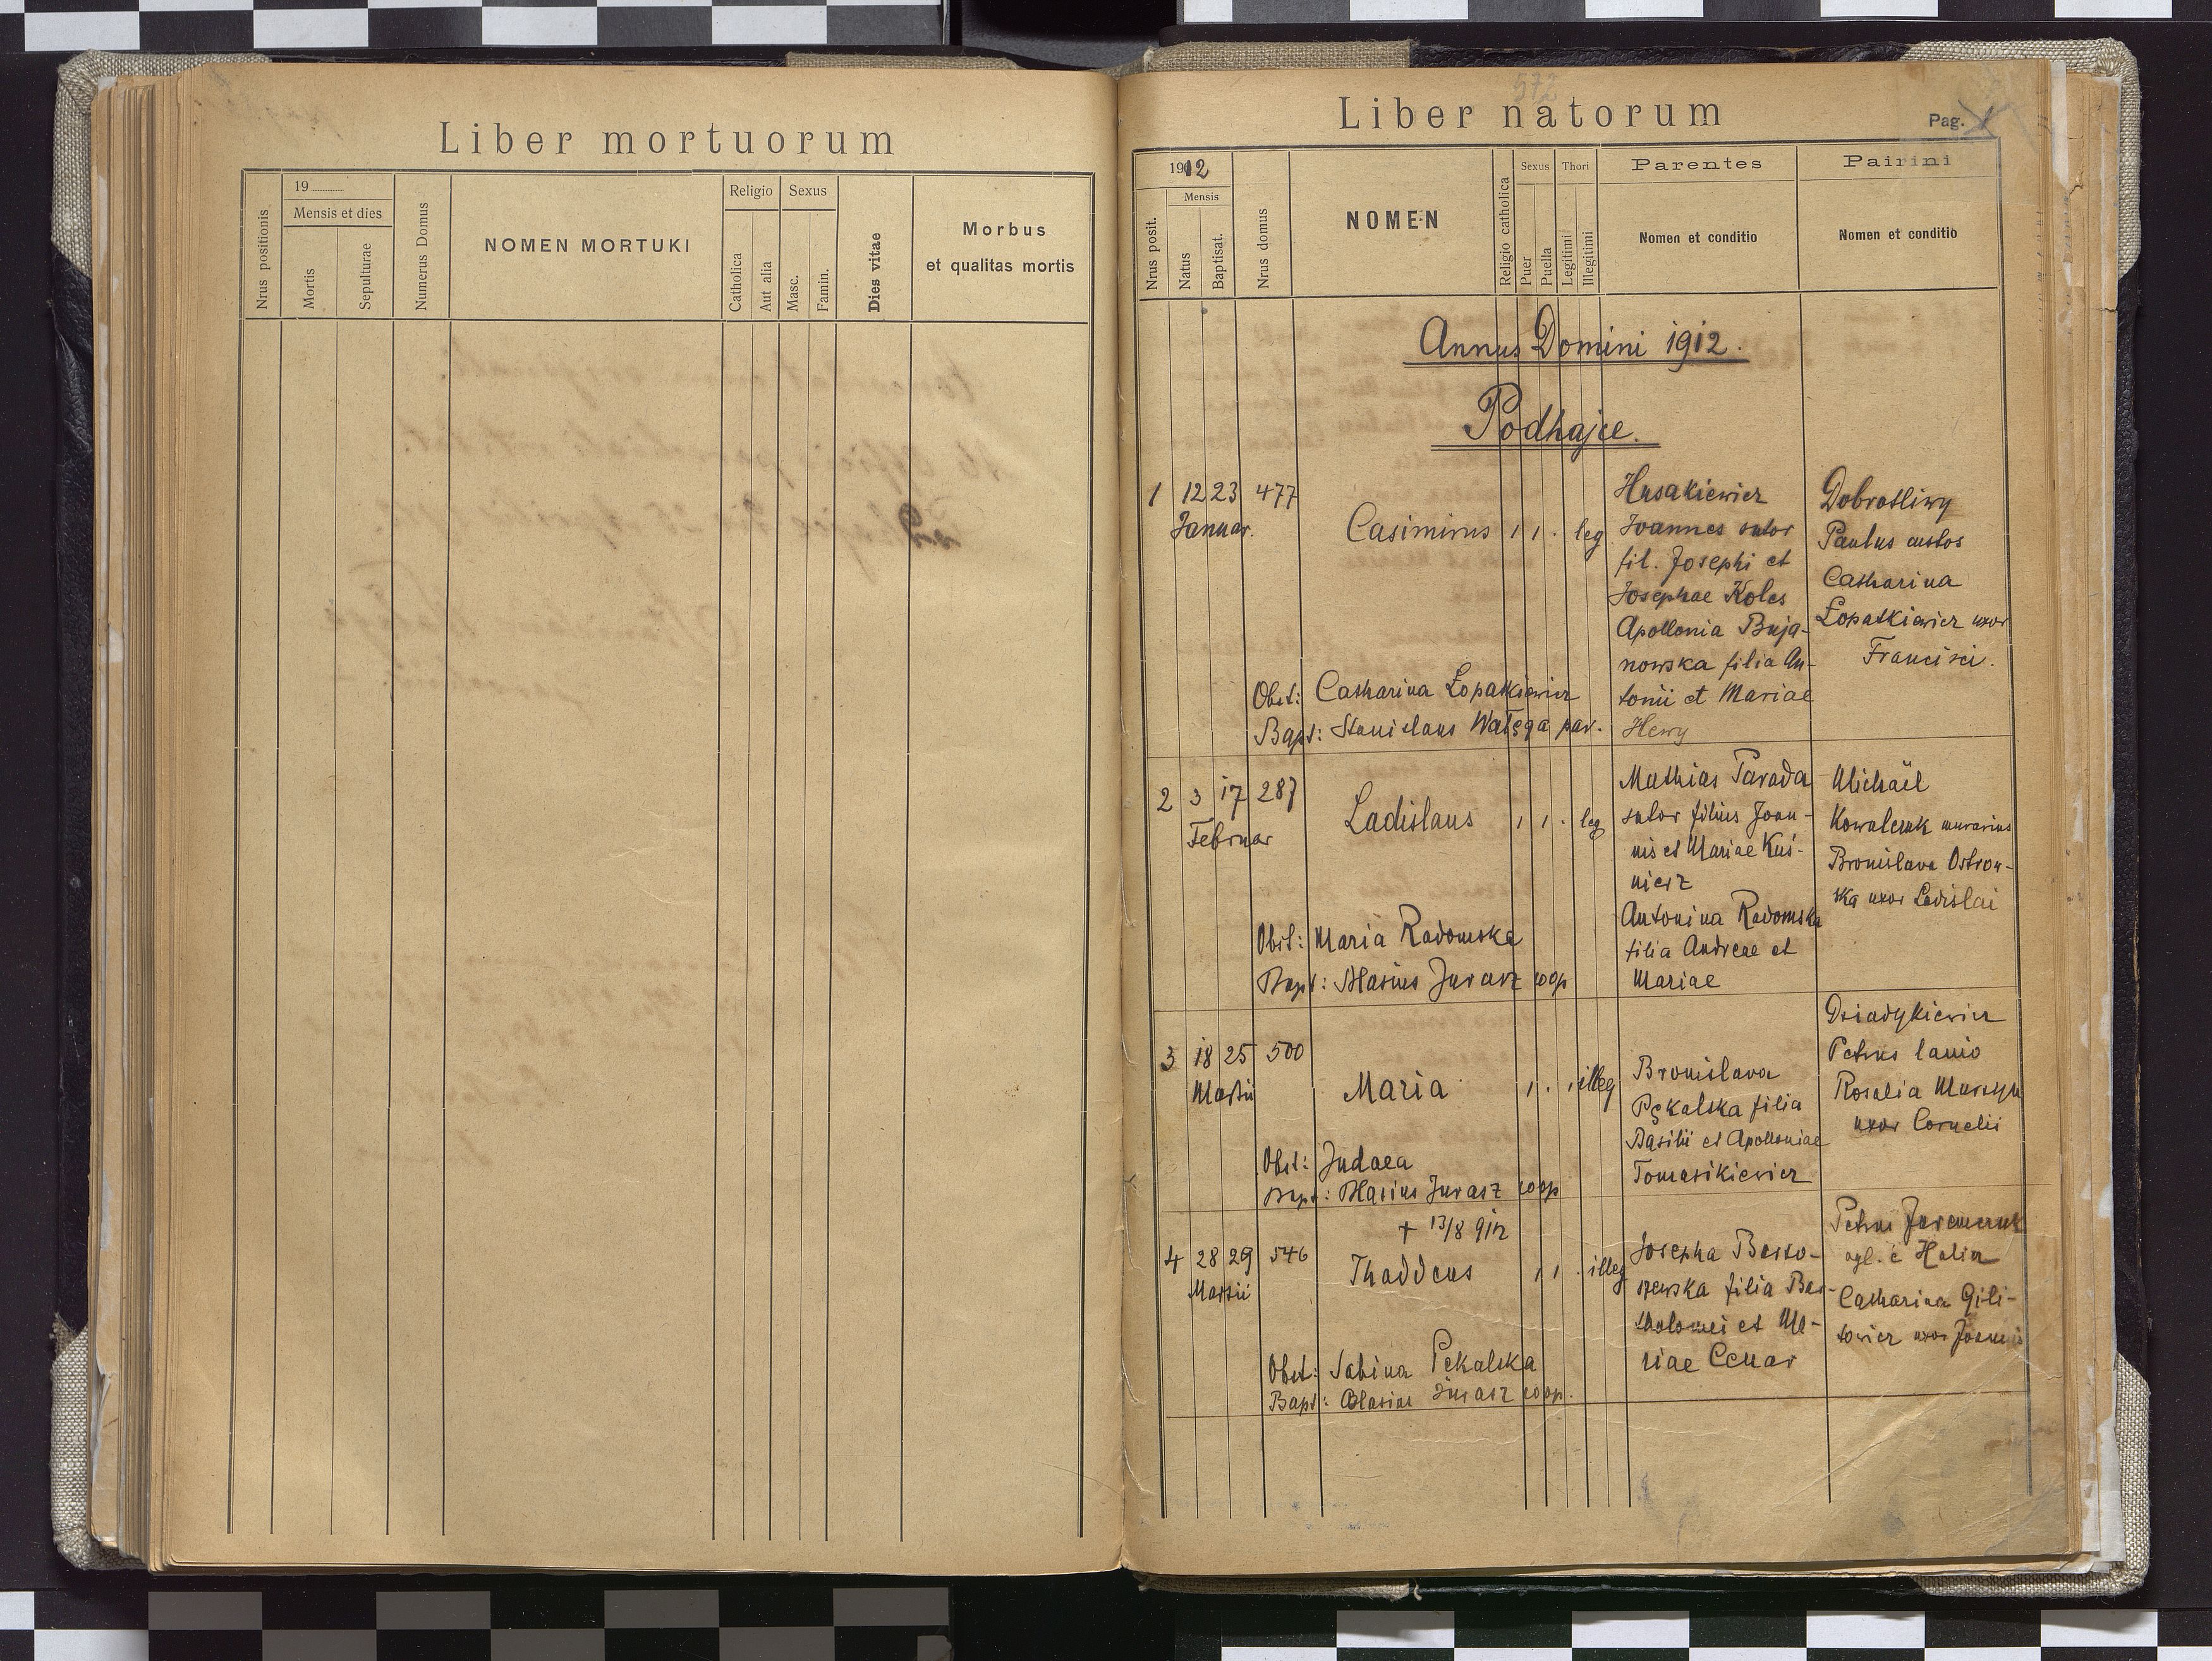 Liber mortuorum
Nrus positionis
19
Mensis et dies
Mortis
Sepulturae
Numerus Domus
NOMEN MORTUKI
Religio
Catholica
Aut alia
Sexus
Masc.
Famin.
Dies vitae
Morbus
et qualitas mortis
572
Liber natorum
Pag. 1
Nrus posit.
1912
Mensis
Natus
Baptisat.
Nrus domus
NOMEN
Religio catholica
Sexus
Puer
Puella
Thori
Legitimi
Illegitimi
Parentes
Nomen et conditio
Pairini
Nomen et conditio
Annus Domini 1912.
Podhajce.
1 12 23 477
Januar.
Casimirus 1 1 . leg
Hrsakiewicz
Joannes sutor
fil. Josephi et
Josephae Koles
Apollonia Buja-
nowska filia An-
tonii et Mariae
Hewy
Dobrotliwy
Paulus custos
Catharina
Łopatkiewicz uxor
Francisci.
Obst: Catharina Łopatkiewicz
Bapt: Stanislaus Wałęga par.
2 3 17 287
Februar
Ladislaus 1 1 . leg
Mathias Parada
sutor filius Joan-
nis et Mariae Kuś-
nierz
Antonina Radomska
filia Andreae et
Mariae
Michaël
Kowalczuk murarius
Bronislava Ostrow-
ska uxor Ladislai
Obst: Maria Radomska
Bapt: Blasius Jurasz coop
3 18 25 500
Martii
Maria 1 . 1 illeg
Bronislava
Pękalska filia
Basilii et Apolloniae
Tomasikiewicz
Dziadykiewicz
Petrus lanio
Rosalia
uxor Cornelii
Obst: Judaea
Bapt: Blasius Jurasz coop
+ 13/8 912
4 28 29 546
Martii
Thaddeus 1 1 . illeg
Josepha Barto-
szewska filia Bar-
tholomei et Ma-
riae Cenar
Petrus Jaremczuk
agl. é Halicz
Catharina Gili-
towicz uxor Joannis
Obst: Sabina Pękalska
Bapt: Blasius Jurasz coop.